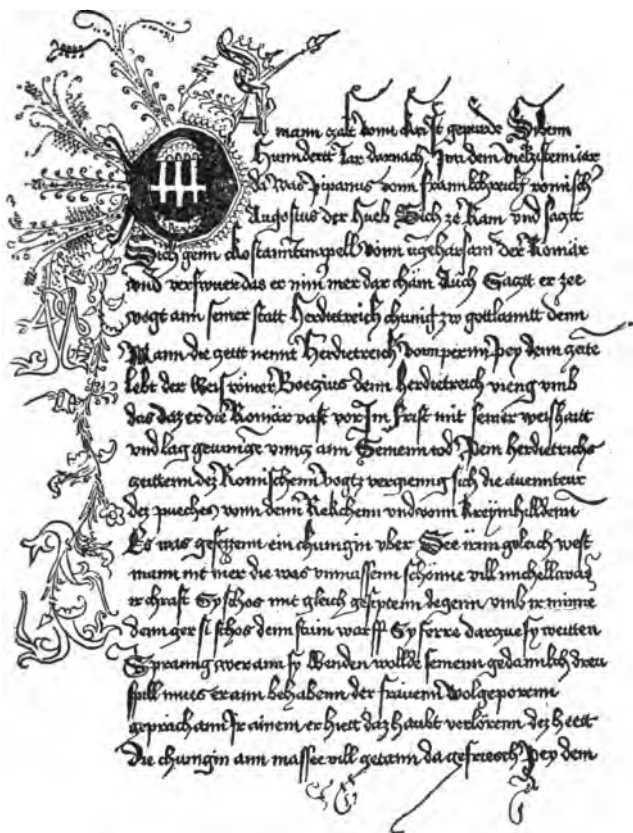 mann zalt vonn christ gepurde Sibenn
Hunndertt Jar darnach Jnn dem vierzistenn iar
da was pipanus vonn frannkchreich romisch
Augostus der hueb Sich ze Ram vnd satzt
Sich genn Costanntinapell vonn vngeharsam der Romär
vnd verswuer das er nim mer dar chäm Auch Sagtt er zee
vogt ann seiner statt herdietreich chunig zw gottlanntt denn
Mann die zeitt nennt herdietreich vonn pernn Pey denn zeite
lebt der Weis römer Boezius denn herdietreich vieng vmb
das daz er die Romär vast vor Jm frist mit seiner weishaitt
vnd lag geuannge vnntz ann Seinenn tod Peӱ herdietrichs
zeittenn dez Romischenn vogtz vergienng sich die auenteur
dez pueches vonn denn Rekchenn vnd vonn kreymhilldenn
Es was gesezzenn ein chunigin vber See irann geleich west
mann nit mer die was vnmassenn schönne vill michell was
ir chraft Sy schos mit gleich degenn vmb ir minne
denn stain warff Sy ferre darnne sy weitten
Spranng wer ann sy Wenden wollde seinenn gedannkch dreu
spill mues er ann behabenn der frauenn Wolgeporenn
geprach ann Jr ainem er hiett daz haubt verlörenn dez hett
die chunigin ann massee vill getann da gefriesch Pey dem